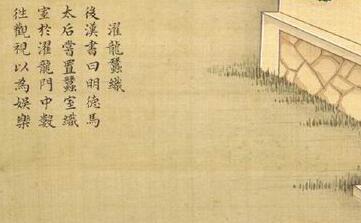 濯龍蠶織
後漢書曰明德馬
太后嘗置蠶室織
室於濯龍門中數
往觀視以為娛樂